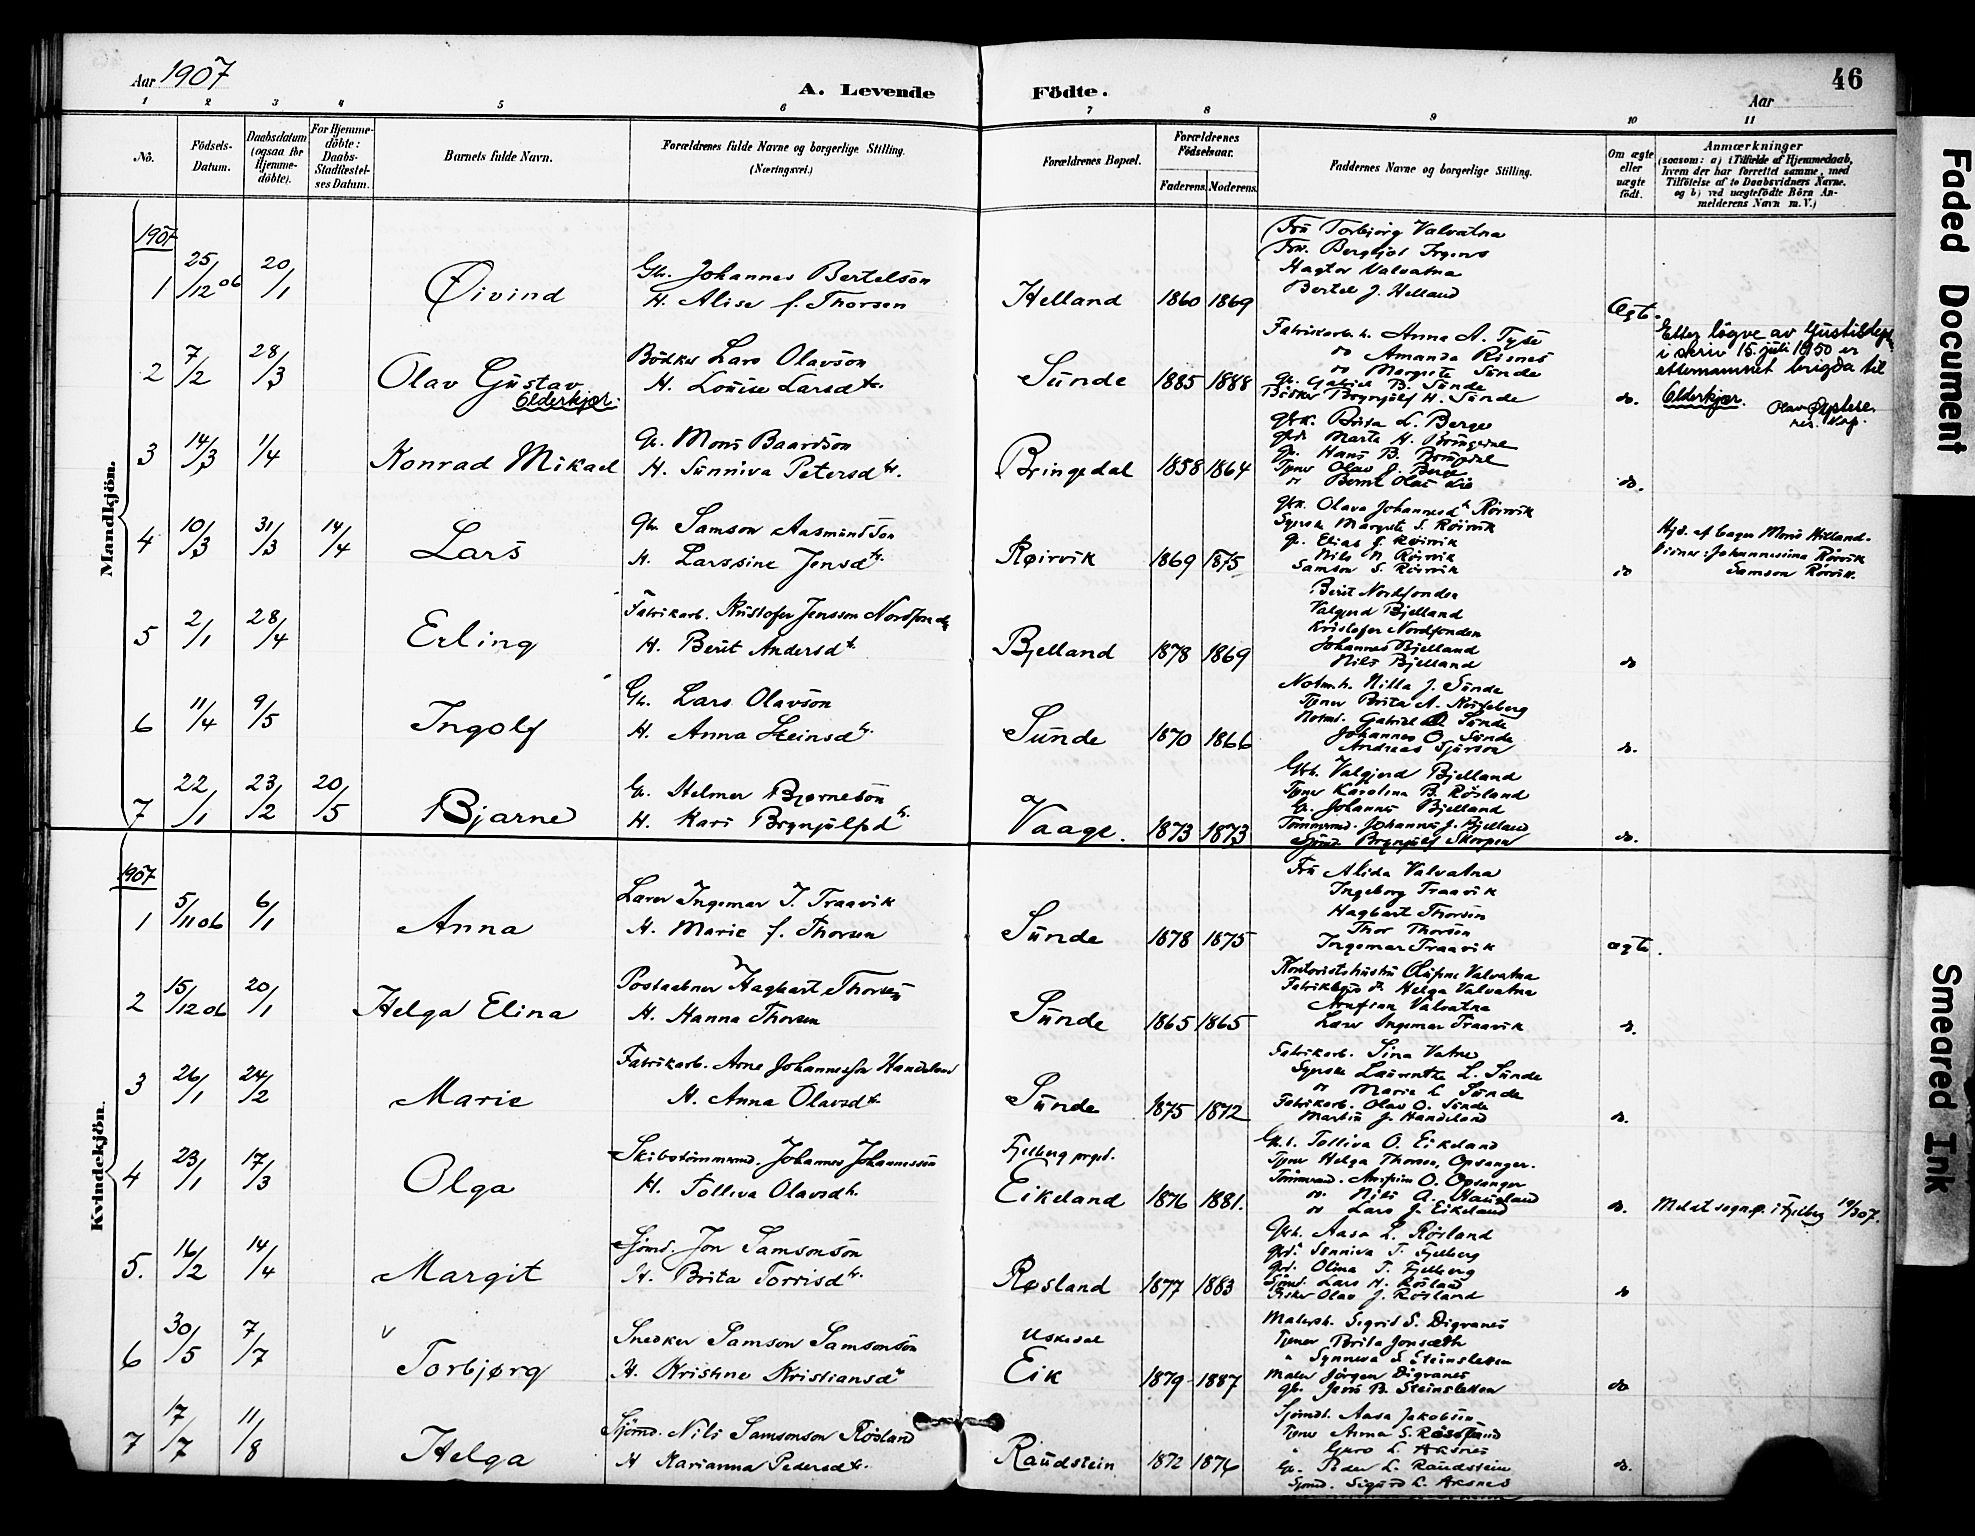 Aar 1907
A. Levende Födte.
Aar
46
1 2 3 4 5 6 7 8 9 10 11
No.
Födsels-Datum.
Daabsdatum (ogsaa for Hjemme-döbte).
For Hjemme-döbte: Daabs-Stadfæstel-ses Datum.
Barnets fulde Navn.
Forældrenes fulde Navne og borgerlige Stilling. (Næringsvei.)
Forældrenes Bopæl.
Forældrenes Födselsaar.
Faderens. Moderens.
Faddernes Navne og borgerlige Stilling.
Om ægte eller uægte födt.
Anmærkninger
(saasom: a) i Tilfælde af Hjemmedaab, hvem der har forrettet samme, med Tilföielse af to Daabsvidners Navne. og b) ved uægtefödte Börn An-melderens Navn m. V.)
Mandkjön.
1907
1 25/12 06 20/1 Øivind
Gb. Johannes Bertelson
H. Alise f. Thorsen
Helland 1860 1869
Fru Torbjörg Valvatna
Frw. Bergljot Irgens
Hagtor Valvatna
Bertel J. Helland
Ægt.
2 7/2 28/3 Olav Gustav Elderkjær.
Bödker Lars Olavson
H. Louise Larsdtr.
Sunde 1885 1888
Fabrikarb. h. Anna A. Tyse
do Amanda Risnes
do Margrete Sunde
G. Gabriel B. Sunde
Bödker Brynjulf H. Sunde
do.
Etter löyve av Justisdep.
i skriv 15. juli 1950 er
etternamnet brigda til
Elderkjær.
3 14/3 1/4 Konrad Mikael
G. Mons Baardson
H. Sunniva Petersdtr.
Bringedal 1858 1864
Gbk. Brita L. Berge
Marta H. Bringedal
G. Hans B. Bringedal
Tjener Olav J. Berge
do Bernt Olai
do.
4 10/3 31/3 14/4 Lars
Gb. Samson Aasmundson
H. Larssine Jensdtr.
Røirvik 1869 1875
Gbk. Olava Johannesdtr Röirvik
Syerske Margrete S. Röirvik
G. Elias J. Röirvik
Nils N. Röirvik
Samson S. Röirvik
do
Hjd. af bager Mons Helland.
Vidner: Johannesina Rörvik
Samson Rörvik.
5 2/1 28/4 Erling
Fabrikarb. Kristofer Jensson Nordfonden
H. Berit Andersdtr.
Bjelland 1878 1869
Berit Nordfonden
Valgjerd Bjelland
Kristofer Nordfonden
Johannes Bjelland
Nils Bjelland
do
6 11/4 9/5 Ingolf
Gb. Lars Olavson
H. Anna Steinsdtr.
Sunde 1870 1866
Notm. h. Nilla J. Sunde
Tjener Brita A.
Notm. Gabriel O. Sunde
Johannes O. Sunde
Andreas
do.
7 22/1 23/2 20/5 Bjarne
G. Helmer Bjørneson
H. Kari Brynjulfsdtr.
Vaage. 1873 1873
Gbk. Valgjerd Bjelland
Tjener Karolina B. Rösland
G. Johannes Bjelland
Tömmermd. Johannes J. Bjelland
Sjömd. Brynjulf Skorpen
do.
Kvindekjön.
1907
1 5/11 06 6/1 Anna
Lærer Ingemar I. Traavik
H. Marie f. Thorsen
Sunde 1878 1875
Fru Alida Valvatna
Ingeborg Traavik
Hagbart Thorsen
Thor Thorsen
Ingemar Traavik
ægte.
2 15/12 06 20/1 Helga Elina
Postaabner Hagbart Thorsen
H. Hanna Thorsen
Sunde 1865 1865
Kontoristhustru Valvatna
Helga Valvatna
Valvatna
Lærer Ingemar Traavik
do.
3 26/1 24/2 Marie
Fabrikarb. Arne Johannesson Handeland
H. Anna Olavsdtr.
Sunde 1875 1872
Fabrikarb. Sina Vatne
Syerske Laurentze L. Sunde
do Marie L Sunde
Fabrikarb. Olav O. Sunde
Martin J. Handeland
do.
4 23/1 17/3 Olga
Skibstömmermd. Johannes Johannesson
H. Tolliva Olavsdtr.
Fjelberg prgd.
Eikeland 1876 1881.
Gbk. Tolliva O. Eikeland
Tjener Helga Thorsen, Opsanger.
Tömmermd. Arnfinn O. Opsanger
do. Nils A. Haugland
do Lars J. Eikeland
do.
Meldt sognep. i Fjelberg
5. 16/2 14/4 Margit
Sjömd. Jon Samsonson
H. Brita Torrisdtr.
Røsland 1877 1883
Gbk. Aasa L. Rösland
Sunniva T. Fjelberg
Olina T. Fjelberg
Sjömd. Lars H. Rösland
Fisker Olav J. Rösland
do
6 30/5 7/7 Torbjørg
Snedker Samson Samsonson
H. Kristine Kristiansdtr
Uskedal
Eik 1879 1887
Malersh. Sigrid S. Digranes
Tjener Brita Jonsæth
" Synneva S. Steinsletten
Maler Jörgen Digranes
Gb. Jens B. Steinsletten
do
7 17/7 11/8 Helga
Sjömd. Nils Samsonson Rösland
H Marianna Pedersdtr.
Raudstein 1872 1876
Sjömdh. Aasa Jakobsen
Tjener Anna S. Rösland
" Guro L. Aksnes
G. Peder L. Raudstein
Sjömd. Sigurd L. Aksnes
do.
Faded Document
Smeared Ink